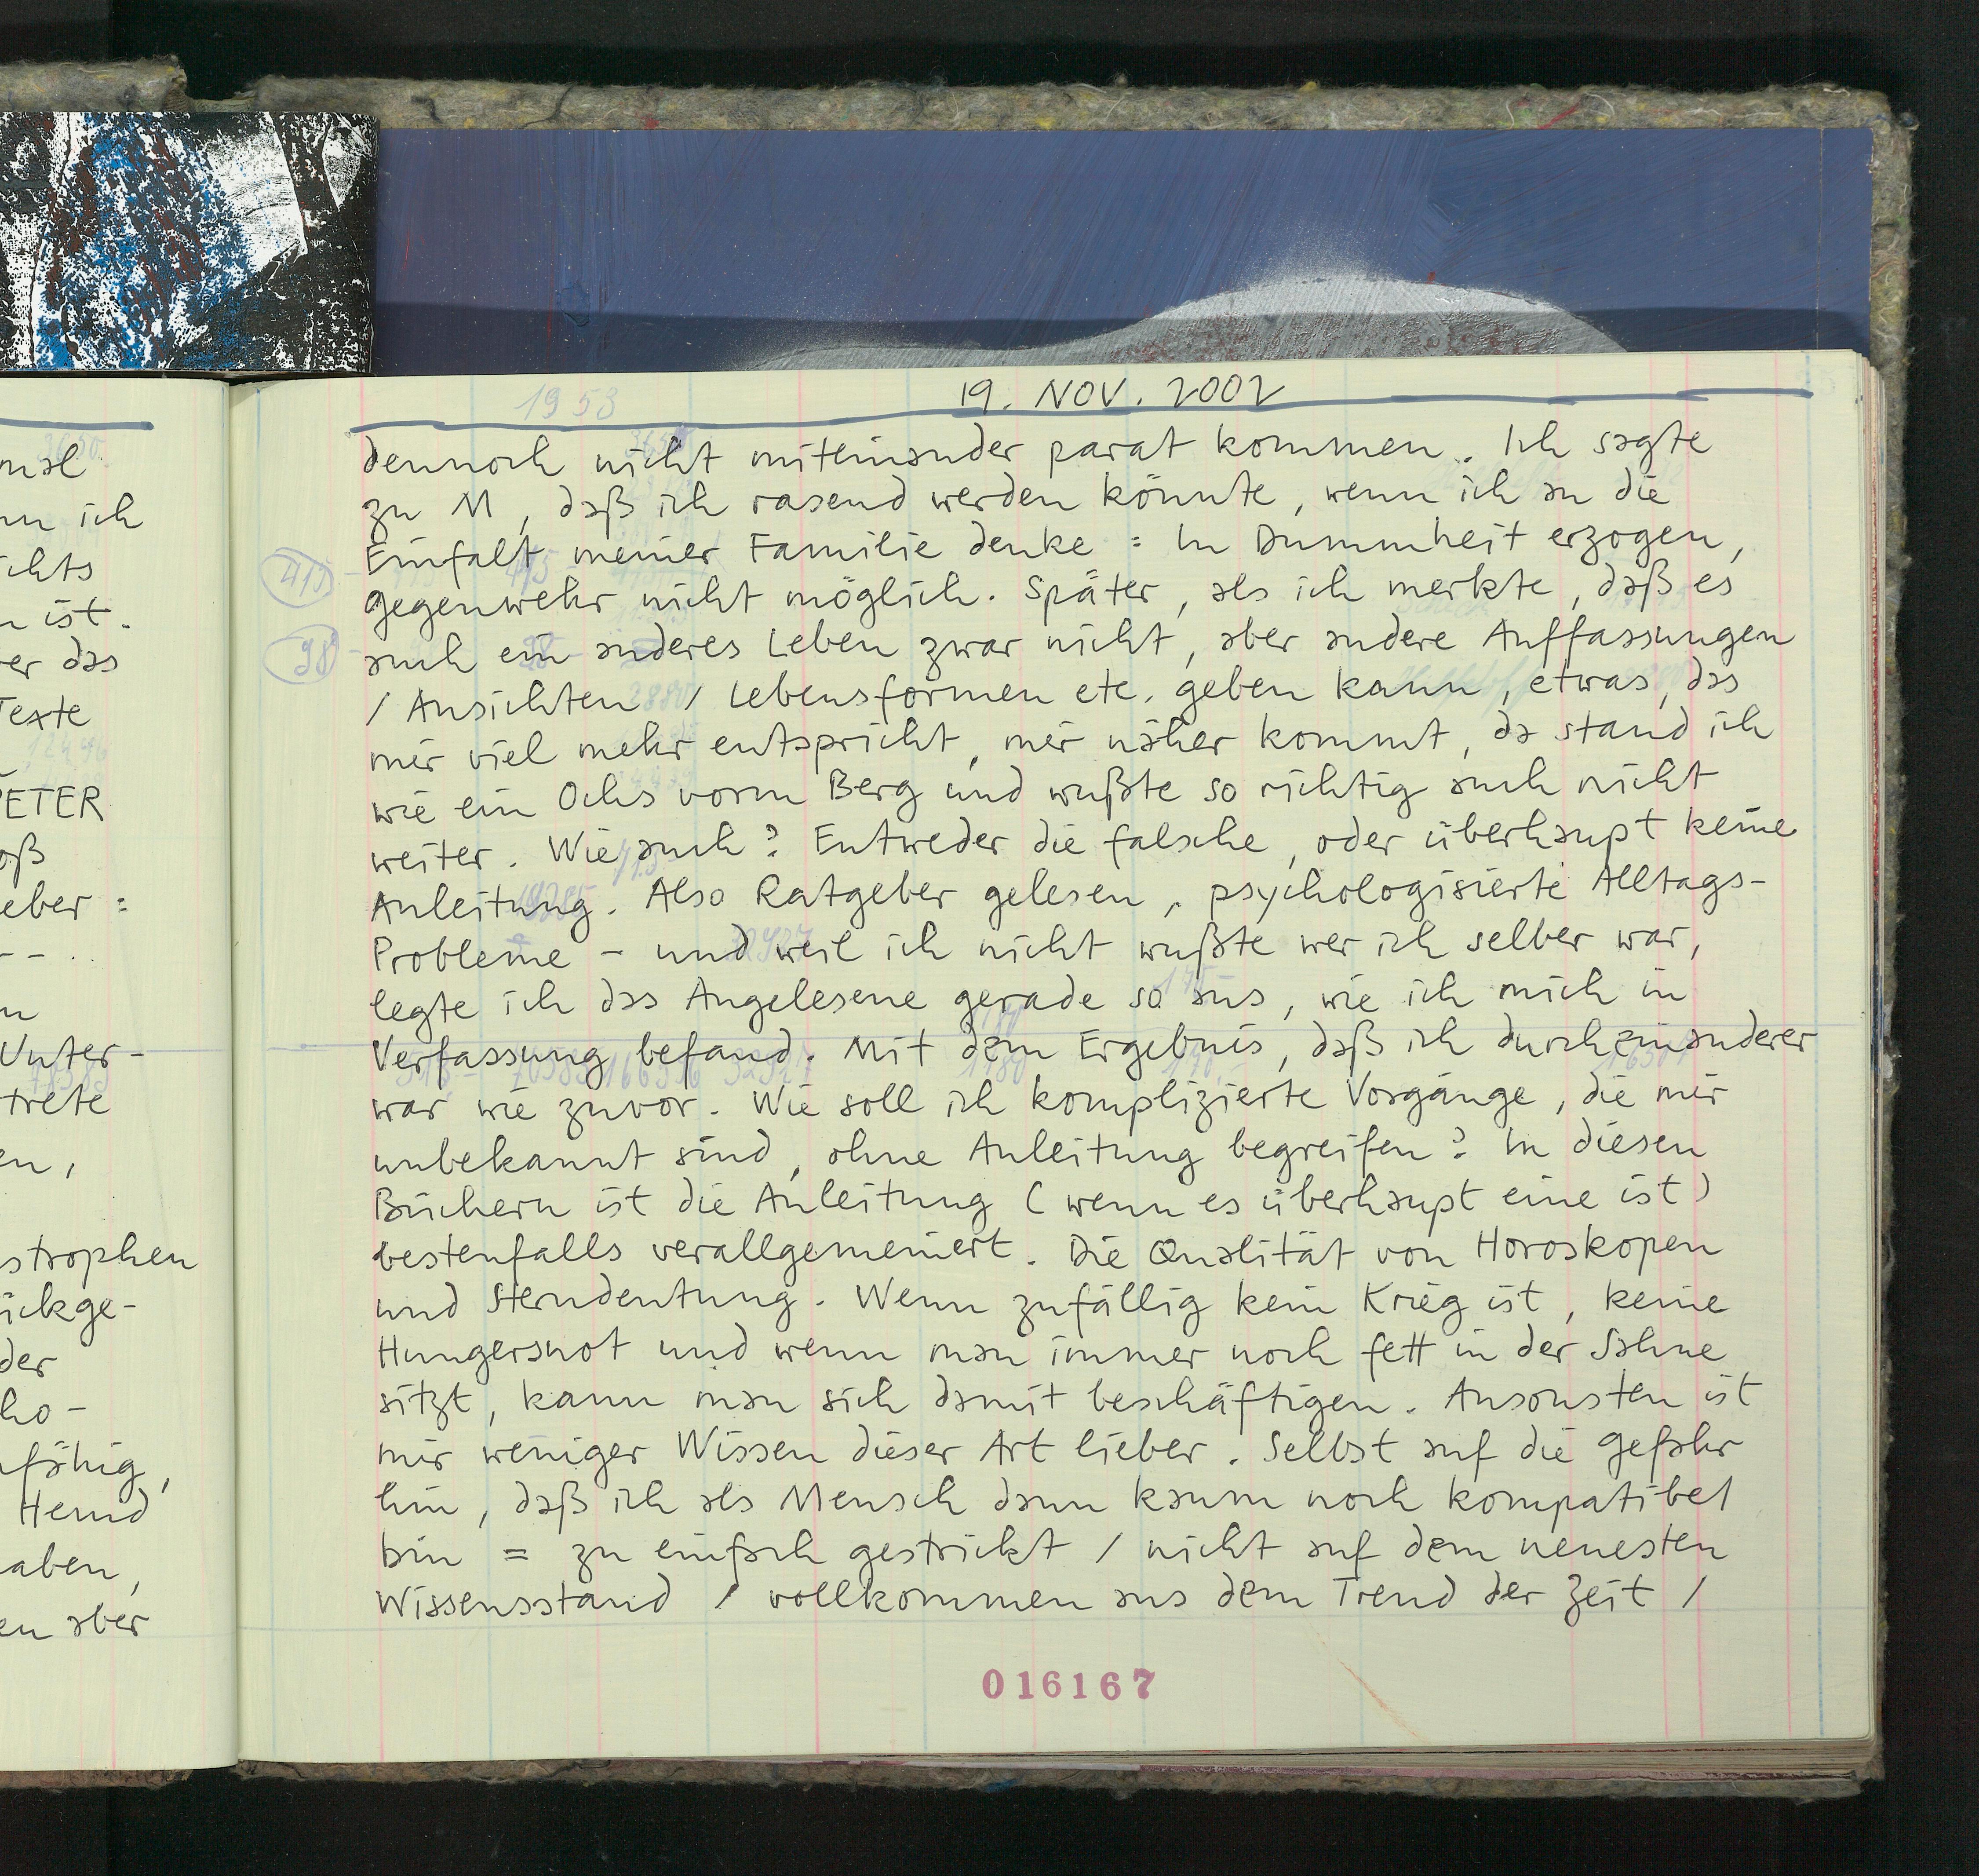 mal
nn ich
ichts
n ist.
er das
Texte
PETER
oß
eber :
Unter-
trete
en,
strophen
ickge-
der
ho-
nfähig,
Hemd
aben,
en aber
1953
19. NOV. 2002
dennoch nicht miteinander parat kommen. Ich sagte
zu M, daß ich rasend werden könnte, wenn ich an die
Einfalt meiner Familie denke : In Dummheit erzogen,
gegenwehr nicht möglich. Später, als ich merkte, daß es
auch ein anderes Leben zwar nicht, aber andere Auffassungen
/ Ansichten / Lebensformen etc. geben kann, etwas, das
mir viel mehr entspricht, mir näher kommt, da stand ich
wie ein Ochs vorm Berg und wußte so richtig auch nicht
weiter. Wie auch? Entweder die falsche, oder überhaupt keine
Anleitung. Also Ratgeber gelesen, psychologisierte Alltags-
Probleme - und weil ich nicht wußte wer ich selber war,
legte ich das Angelesene gerade so aus, wie ich mich in
Verfassung befand. Mit dem Ergebnis, daß ich durcheinanderer
war wie zuvor. Wie soll ich komplizierte Vorgänge, die mir
unbekannt sind, ohne Anleitung begreifen? In diesen
Büchern ist die Anleitung (wenn es überhaupt eine ist)
bestenfalls verallgemeinert. Die Qualität von Horoskopen
und Sterndeutung. Wenn zufällig kein Krieg ist, keine
Hungersnot und wenn man immer noch fett in der Sahne
sitzt, kann man sich damit beschäftigen. Ansonsten ist
mir weniger Wissen dieser Art lieber. Selbst auf die gefahr
hin, daß ich als Mensch dann kaum noch kompatibel
bin = zu einfach gestrickt / nicht auf dem neuesten
Wissensstand / vollkommen aus dem Trend der Zeit /
016167